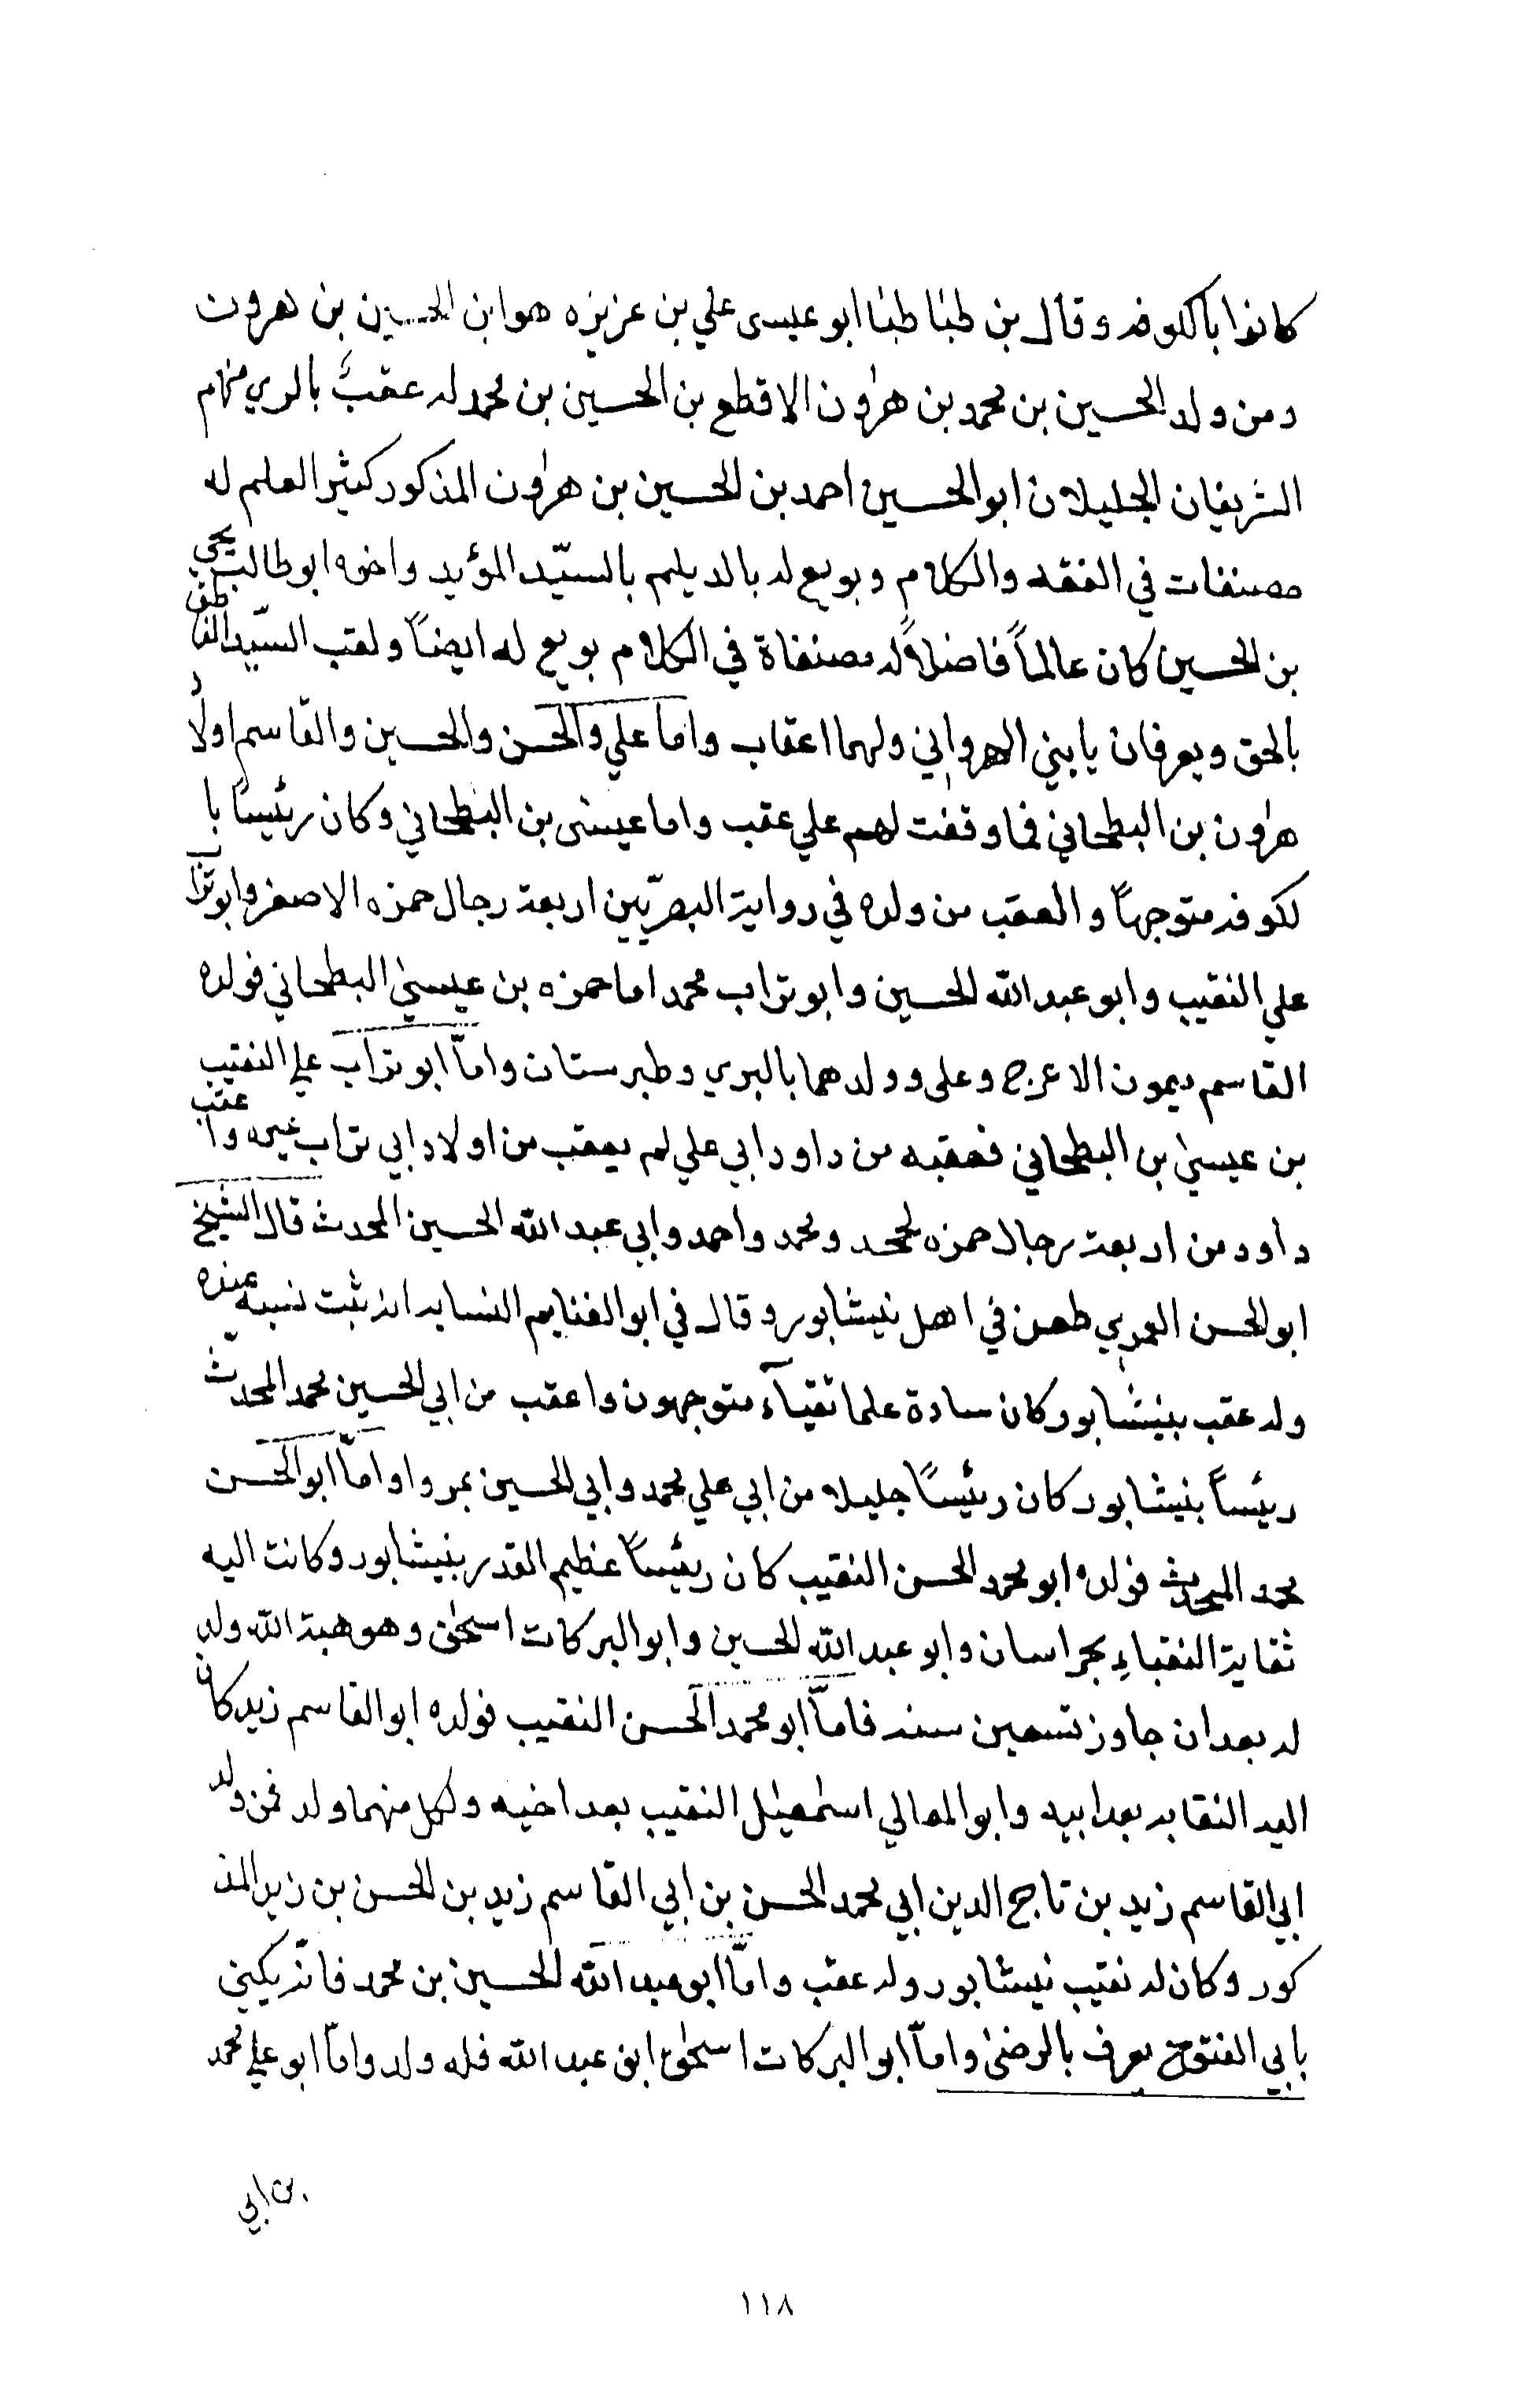 كانوا بالكوفه وقال بن طباطبا ابو عيسى علي بن عزيزه هو ابن الحسين بن هرون
ومن ولد الحسين بن محمد بن هرون الاقطع بن الحسين بن محمد له عقبٌ بالري منهم
الشريفان الجليلان ابو الحسين احمد بن الحسين بن هرون المذكور كثير العلم له
مصنفات في الفقه والكلام وبويع له بالديلم بالسيّد المؤيد واخوه ابو طالب يحيى
بن الحسين كان عالماً فاضلاً له مصنفاة في الكلام بويع له ايضاً ولقب السيّد الناطق
بالحق ويعرفان بابني الهرواني ولهما اعقاب واما علي والحسن والحسين والقاسم اولاد
هرون بن البطحاني فما وقفت لهم علي عقب واما عيسى بن البطحاني وكان رئيسًا با
لكوفه متوجهاً والعقب من ولده في رواية البصريّين اربعة رجال حمزه الاصغر وابو تراب
علي النقيب وابو عبد الله الحسين وابو تراب محمد اما حمزه بن عيسى البطحاني فولده
القاسم ميمون الاعرج وعلى وولدهما بالبري وطبرستان وامّا ابو تراب علي النقيب
بن عيسى بن البطحاني فعقبه من داود ابي علي لم يعقب من اولاد ابي تراب غيره واعقب
داود من اربعة رجال حمزه محمد واحمد وابي عبد الله الحسين المحدث قال الشيخ
ابو الحسن العمري طعن في اهل نيشابور وقال في ابو الغنايم النسابه انه ثبت نسبه عنده
وله عقب بنيشابور كان سادة علما نقيآء متوجهون واعقب من ابي الحسين محمد المحدث
رئيساً بنيشابور كان رئيسًا جليلا من ابي علي محمد وابي الحسين بمروا وامّا ابو الحسن
محمد المحدث فولده ابو محمد الحسن النقيب كان رئيسًا عظيم القدر بنيشابور وكانت اليه
نقاية النقباء بخراسان وابو عبد الله الحسين وابو البركات اسحق وهو هبة الله ولد
له بعد ان جاوز تسعين سنه فامّا ابو محمد الحسن النقيب فولده ابو القاسم زيد كان
اليه النقابه بعد ابيه وابو المعالي اسمعيل النقيب بعد اخيه ولكل منهما ولد فمن ولد
ابي القاسم زيد بن تاج الدين ابي محمد الحسن بن ابي القاسم زيد بن الحسن بن زيد المذ
كور وكان له نقيب نيشابور وله عقب وامّا ابو عبد الله الحسين بن محمد فانّه يكنى
بابي الفتوح يعرف بالرضى وامّا ابو البركات اسحق ابن عبد الله فله ولد وامّا ابو علي محمد
بن ابي
١١٨